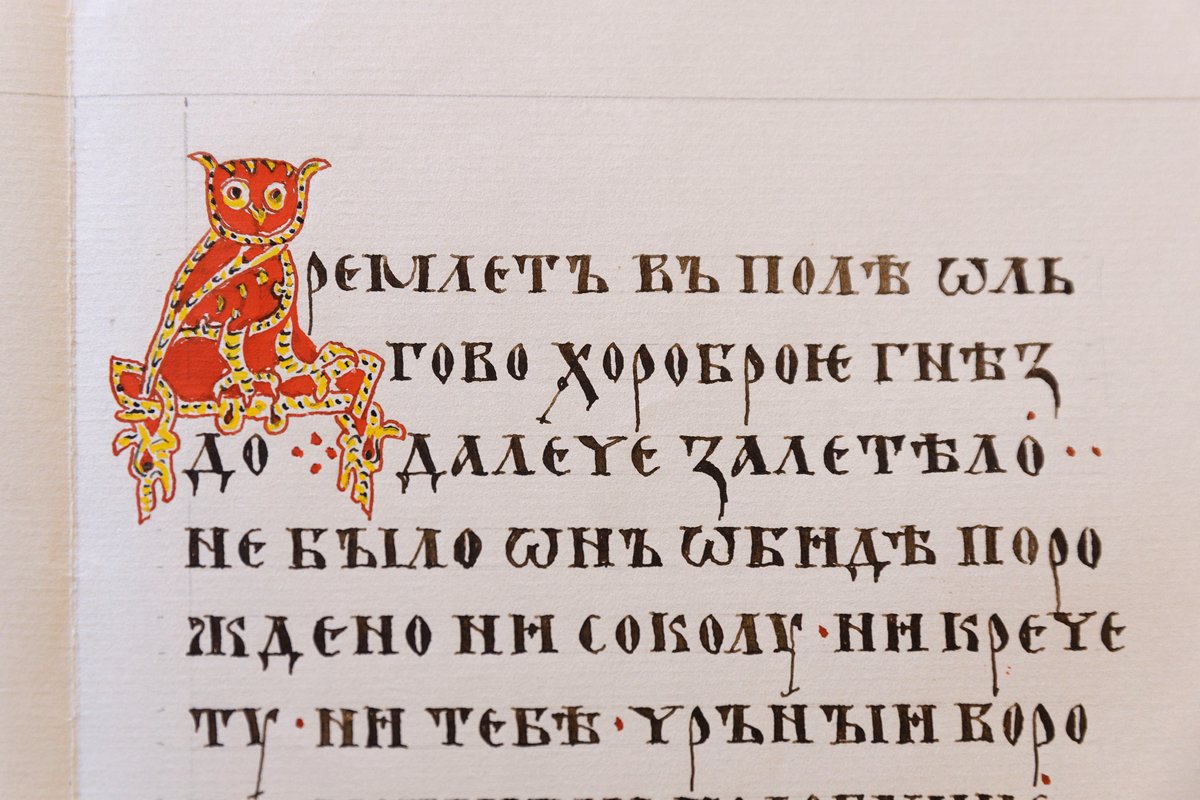 Дремлетъ въ полѣ ѡль
гово хороброѥ гнѣз
до ⁘ далече залетѣло ··
не было ѡнъ ѡбидѣ поро
ждено ни соколу · ни крече
ту · ни тебѣ · чрънъıи воро